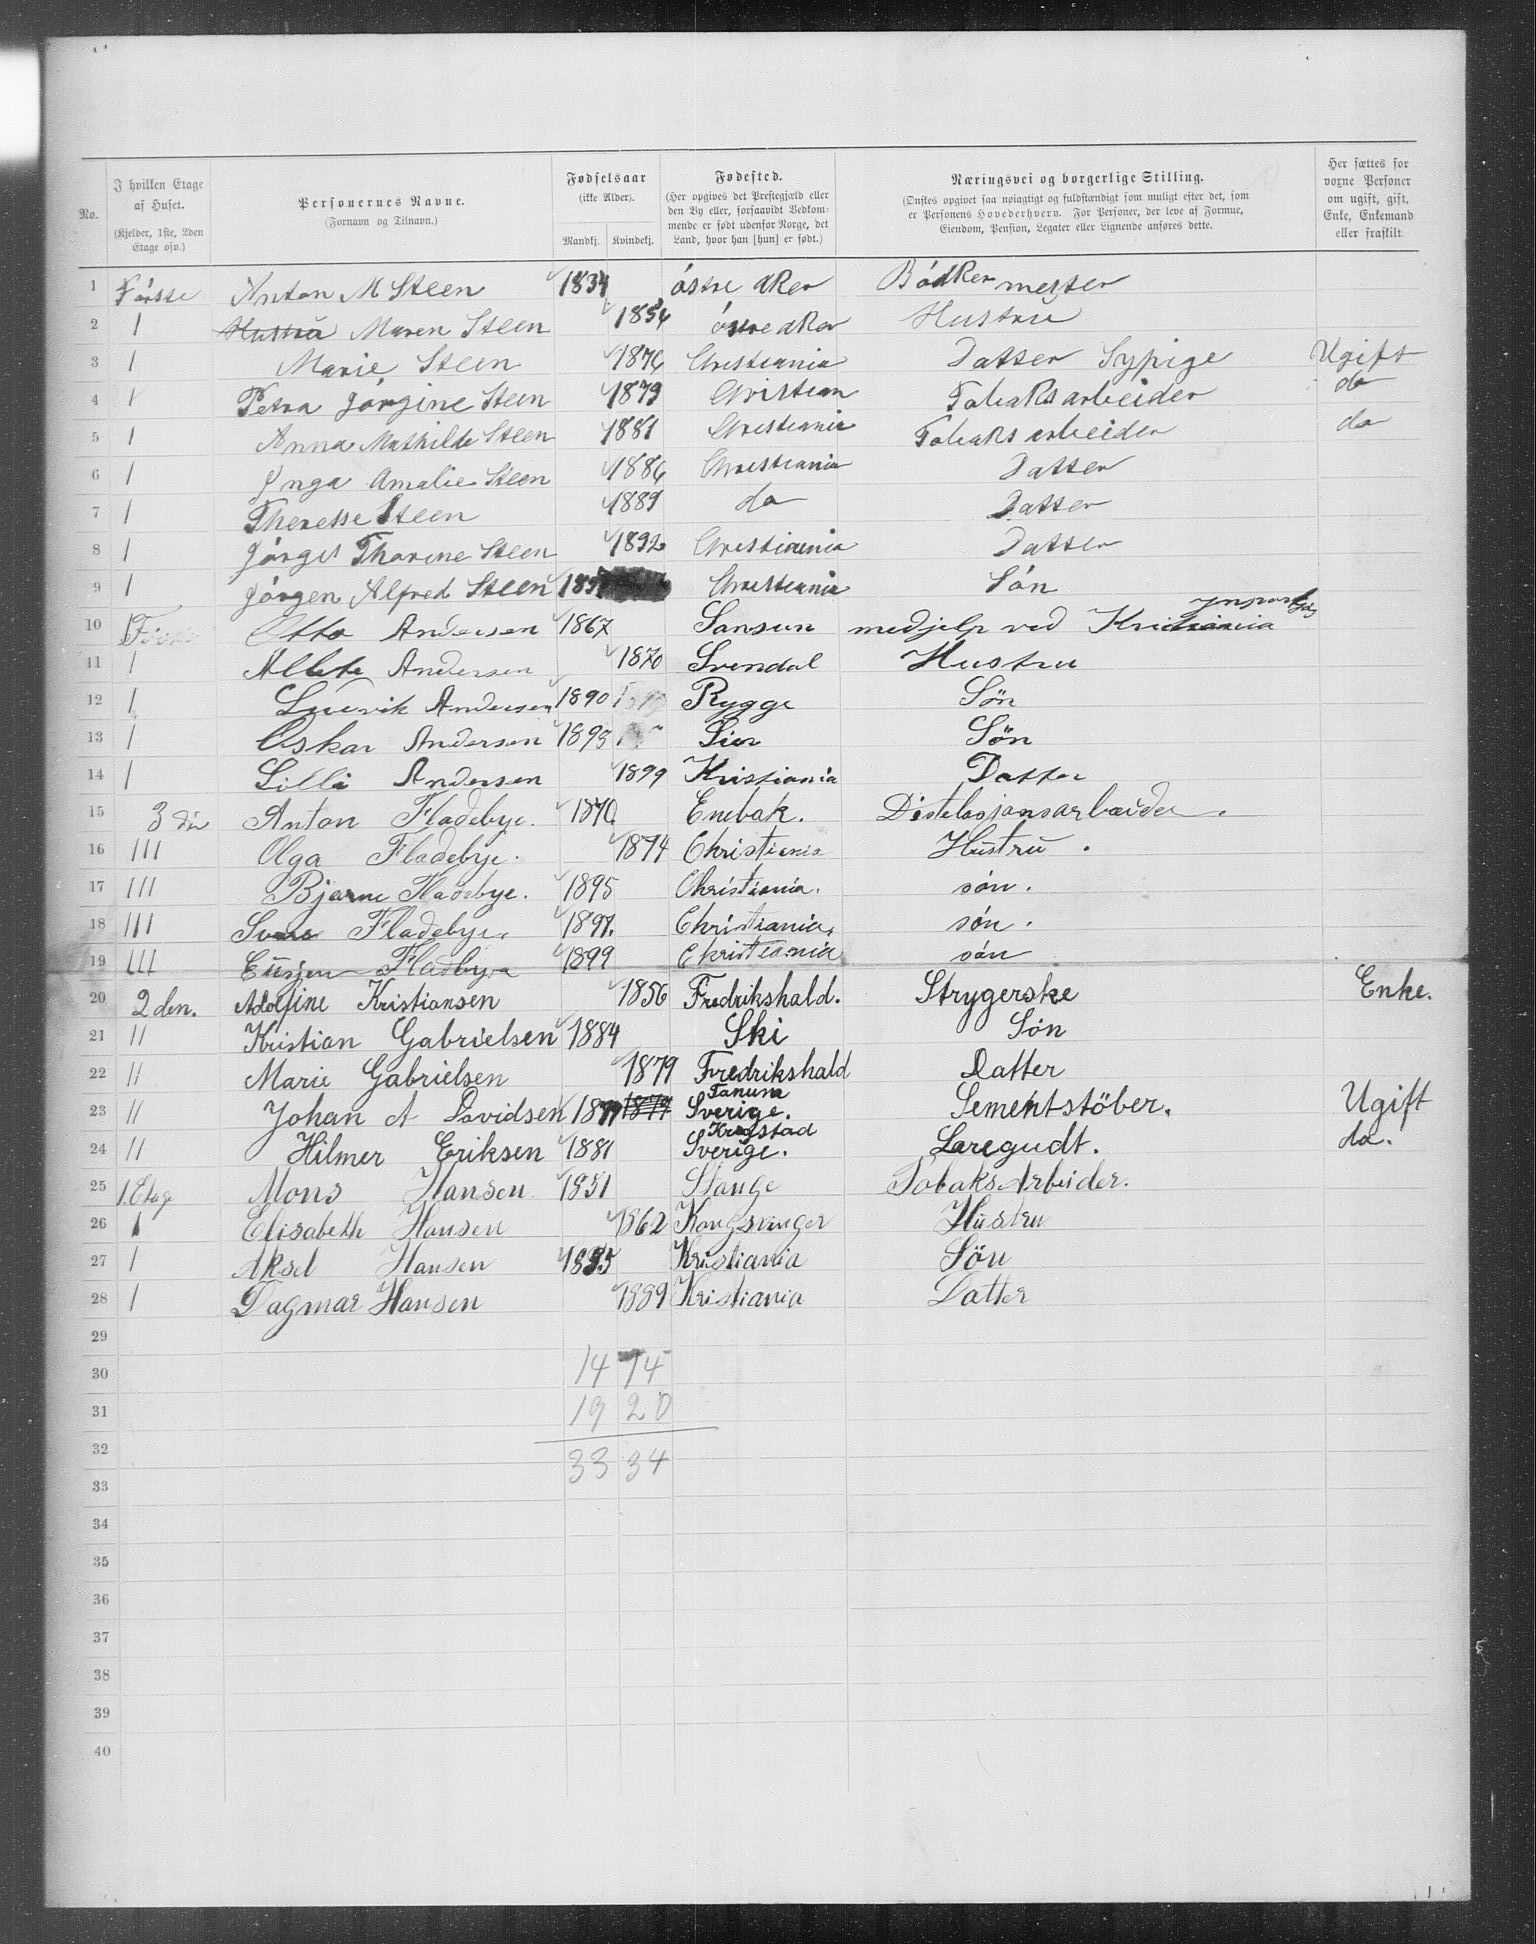 No.
I hvilken Etage af Huset.
(Kjelder, 1ste, 2den Etage osv.)
Personernes Navne.
(Fornavn og Tilnavn.)
Fødselsaar
(ikke Alder).
Mandkj. Kvindekj.
Fødested.
(Her opgives det Prestegjæld eller den By eller, forsaavidt Vedkommende er født udenfor Norge, det Land, hvor han [hun] er født.)
Næringsvei og borgerlige Stilling.
(Ønskes opgivet saa nøiagtigt og fuldstændigt som muligt efter det, som er Personens Hovederhverv. For Personer, der leve af Formue, Eiendom, Pension, Legater eller Lignende anføres dette.
Her sættes for voxne Personer om ugift, gift, Enke, Enkemand eller fraskilt
1 Førsse Anton M Steen 1834 østre Aker Bødker mester
2 1 Hustru Maren Steen 1854 østre Aker Hustru
3 1 Marie Steen 1876 Christiania Datter Sypige Ugift
4 1 Petra Jørgine Steen 1879 Christian Tobaksarbeider do
5 1 Anna Mathilde Steen 1881 Christiania Tobaksarbeider do
6 1 Ynga Amalie Steen 1886 Christiania Datter
7 1 Theresse Steen 1889 do Datter
8 1 Thorine Steen 1892 Christiania Datter
9 1 Jørgen Alfred Steen Christiania Søn
10 Otto Andersen 1867 Sansun medjelp ved
11 1 Andersen 1870 Svendal Hustru
12 1 Andersen 1890 Rygge Søn
13 1 Oskar Andersen 1893 Lier Søn
14 1 Lilli Andersen 1899 Kristiania Datter
15 3 die Anton Fladebye. 1870 Enebak. Distelasjonsarbæider.
16 111 Olga Fladebye. 1874 Christiania Hustru.
17 111 Bjarne Fladebye. 1895 Christiania. søn.
18 111 Fladebye. 1897. Christiania. søn.
19 111 Eusjen Fladbye 1899 Christiania søn
20 2 den. Adolfine Kristiansen 1856 Fredrikshald. Strygerske Enke.
21 11 Kristian Gabrielsen 1884 Ski Søn
22 11 Marie Gabrielsen 1879 Fredrikshald Datter
23 11 Johan A Davidsen 1879 Tanum Sverige. Sementstöber. Ugift
24 11 Hilmer Eriksen 1881 Krogstad Sverige. Løregudt. do.
25 1. Etag Mons Hansen 1851 Stange Tobaks Arbeider.
26 1 Elisabeth Hansen 1862 Kongsvinger Hustru
27 1 Aksel Hansen Kristiania Sön
28 1 Dagmar Hansen 1889 Kristiania Datter
29
30 14 14
31 19 20
32 33 34
33
34
35
36
37
38
39
40